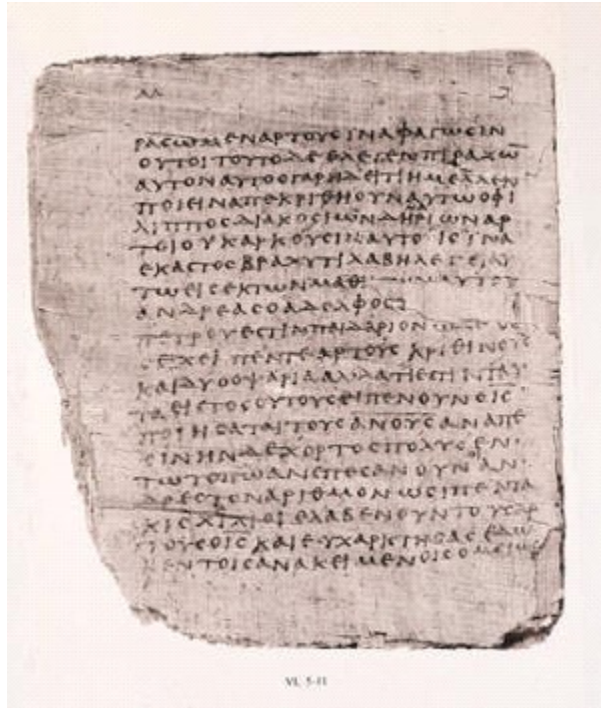 ΡΑϹΩΜΕΝΑΡΤΟΥϹΙΝΑΦΑΓΩϹΙΝ
ΟΥΤΟΙΤΟΥΤΟΔΕΕΛΕΓΕΝΠΙΡΑΖΩ̅
ΑΥΤΟΝΑΥΤΟϹΓΑΡΗΔΕΙΤΙΗΜΕΛΛΕΝ
ΠΟΙΕΙΝΑΠΕΚΡΙΘΗΟΥΝΑΥΤΩΟΦΙ
ΛΙΠΠΟϹΔΙΑΚΟϹΙΩΝΔΗΡΙΩΝΑΡ
ΤΟΙΟΥΚΑΡΚΟΥϹΙΝΑΥΤΟΙϹΙΝΑ
ΕΚΑϹΤΟϹΒΡΑΧΥΤΙΛΑΒΗΛΕΓΕΙΑΥ
ΤΩΕΙϹΕΚΤΩΝΜΑΘ ΑΥΤΟΥ
ΑΝΔΡΕΑϹΟΑΔΕΛΦΟϹ
ΠΕΤΡΟΥΕϹΤΙΝΠΑΙΔΑΡΙΟΝ
ΕΧΕΙΠΕΝΤΕΑΡΤΟΥϹΚΡΙΘΙΝΟΥϹ
ΚΑΙΔΥΟΟΨΑΡΙΑΑΛΛΑΤΙΕϹΤΙΝΤΑΥ
ΤΑΕΙϹΤΟϹΟΥΤΟΥϹΕΙΠΕΝΟΥΝΟΙϹ
ΠΟΙΗϹΑΤΑΙΤΟΥϹΑΝΟΥϹΑΝΑΠΕ
ϹΙΝΗΝΔΕΧΟΡΤΟϹΠΟΛΥϹΕΝ
ΤΩΤΟΠΩΑΝΕΠΕϹΑΝΟΥΝΑΝ
ΔΡΕϹΤΟΝΑΡΙΘΜΟΝΩϹΙΠΕΝΤΑ
ΚΙϹΧΙΛΙΟΙΕΛΑΒΕΝΟΥΝΤΟΥϹΑΡ
ΤΟΥϹΟΙϹΚΑΙΕΥΧΑΡΙϹΤΗϹΑϹΕΔΩ
ΚΕΝΤΟΙϹΑΝΑΚΕΙΜΕΝΟΙϹΟΜΟΙΩϹ
VI, 5-11